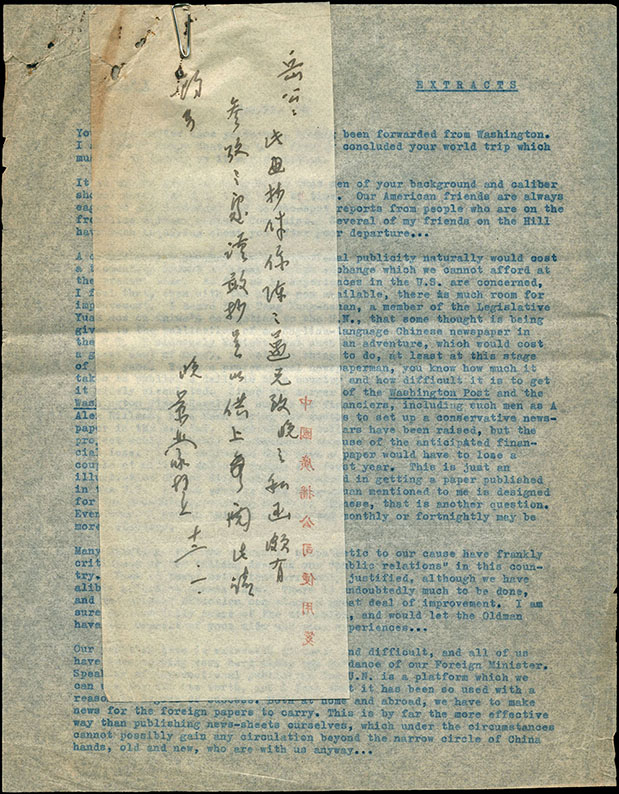 岳公：此函抄件係陳之邁兄致晚之私函頗有
參考之處謹敢抄呈以供上
閱此請
鈞安
晚
十二.一.
中國廣播公司使用箋
EXTRACTS
been forwarded from Washington.
I concluded your world trip which
It en of your background and caliber
Our American friends are always
reports from people who are on the
several of my friends on the Hill
hav r departure...
al publicity naturally would cost
a change which we cannot afford at
the nces in the U.S. are concerned,
I f ailable, there is much room for
imp an, a member of the Legislative
Yua .N., that some thought is being
giv language Chinese newspaper in
the an adventure, which would cost
a g to do, at least at this stage
of paperman, you know how much it
tak and how difficult it is to get
it of the Washington Post and the
Was nanciers, including such men as A
Ale s to set up a conservative news-
pape ars have been raised, but the
pro use of the anticipAted finan-
cial paper would have to lose a
coup st year. This is just an
illu d in getting a paper published
in t uan mentioned to me is designed
for ese, that is another question.
Even onthly or fortnightly may be
more
Many etic to our cause have frankly
crit blic relations" in this coun-
try. justified, although we have
alib ndoubtedly much to be done,
and at deal of improvement. I am
sure , and would let the Oldman
have periences...
Our nd difficult, and all of us
have dance of our Foreign Minister.
Spea U.N. is a platform which we
can t it has been so used with a
reaso at home and abroad, we have to make
news for the foreign papers to carry. This is by far the more effective
way than publishing news-sheets ourselves, which under the circumstances
cannot possibly gain any circulation beyond the narrow circle of China
hands, old and new, who are with us anyway...